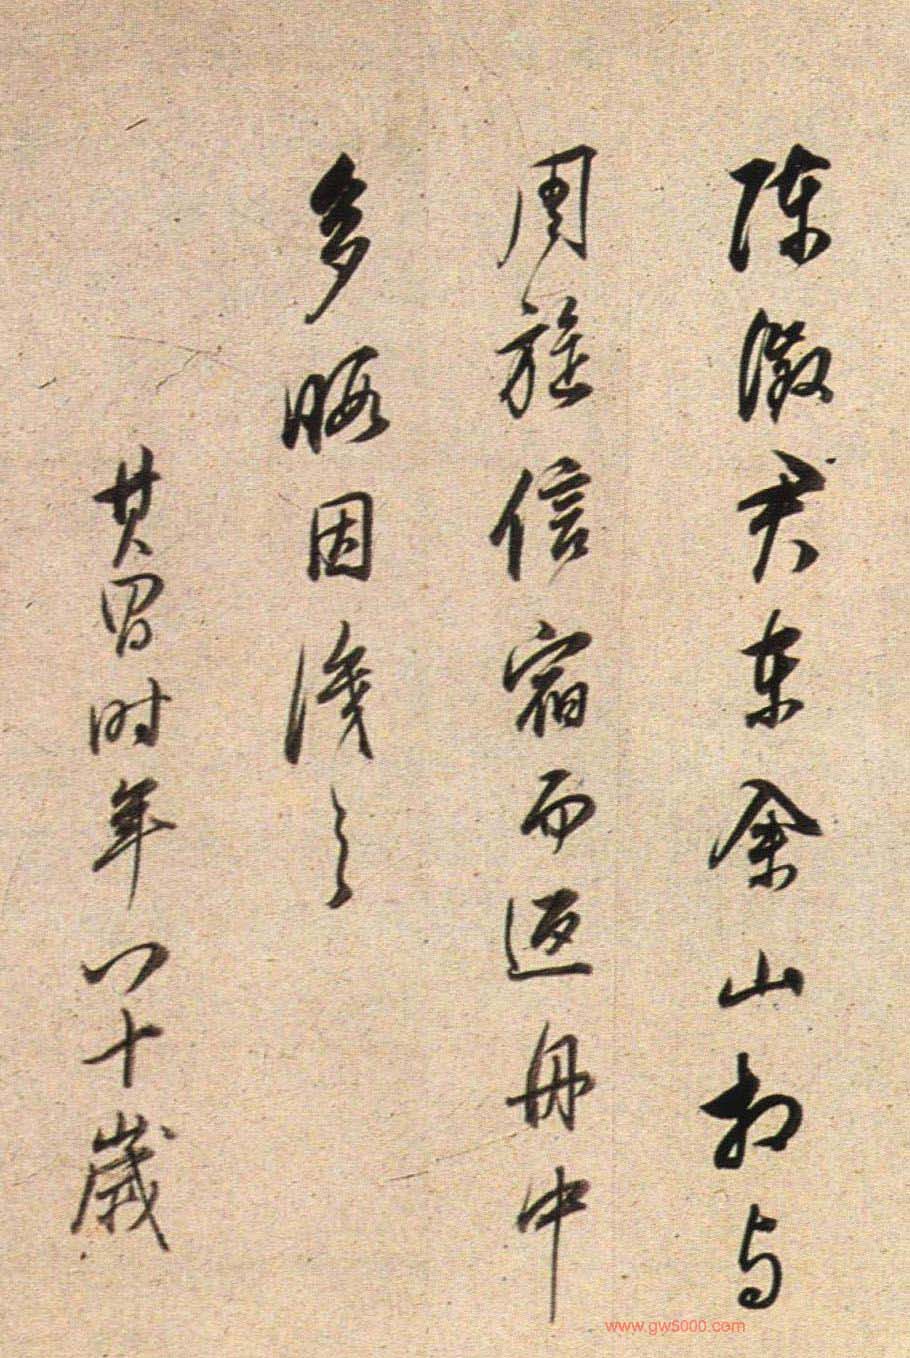 陳徵君東佘山相与
周旋信宿而返舟中
多暇因識之
其昌時年八十歲
www.gw5000.com